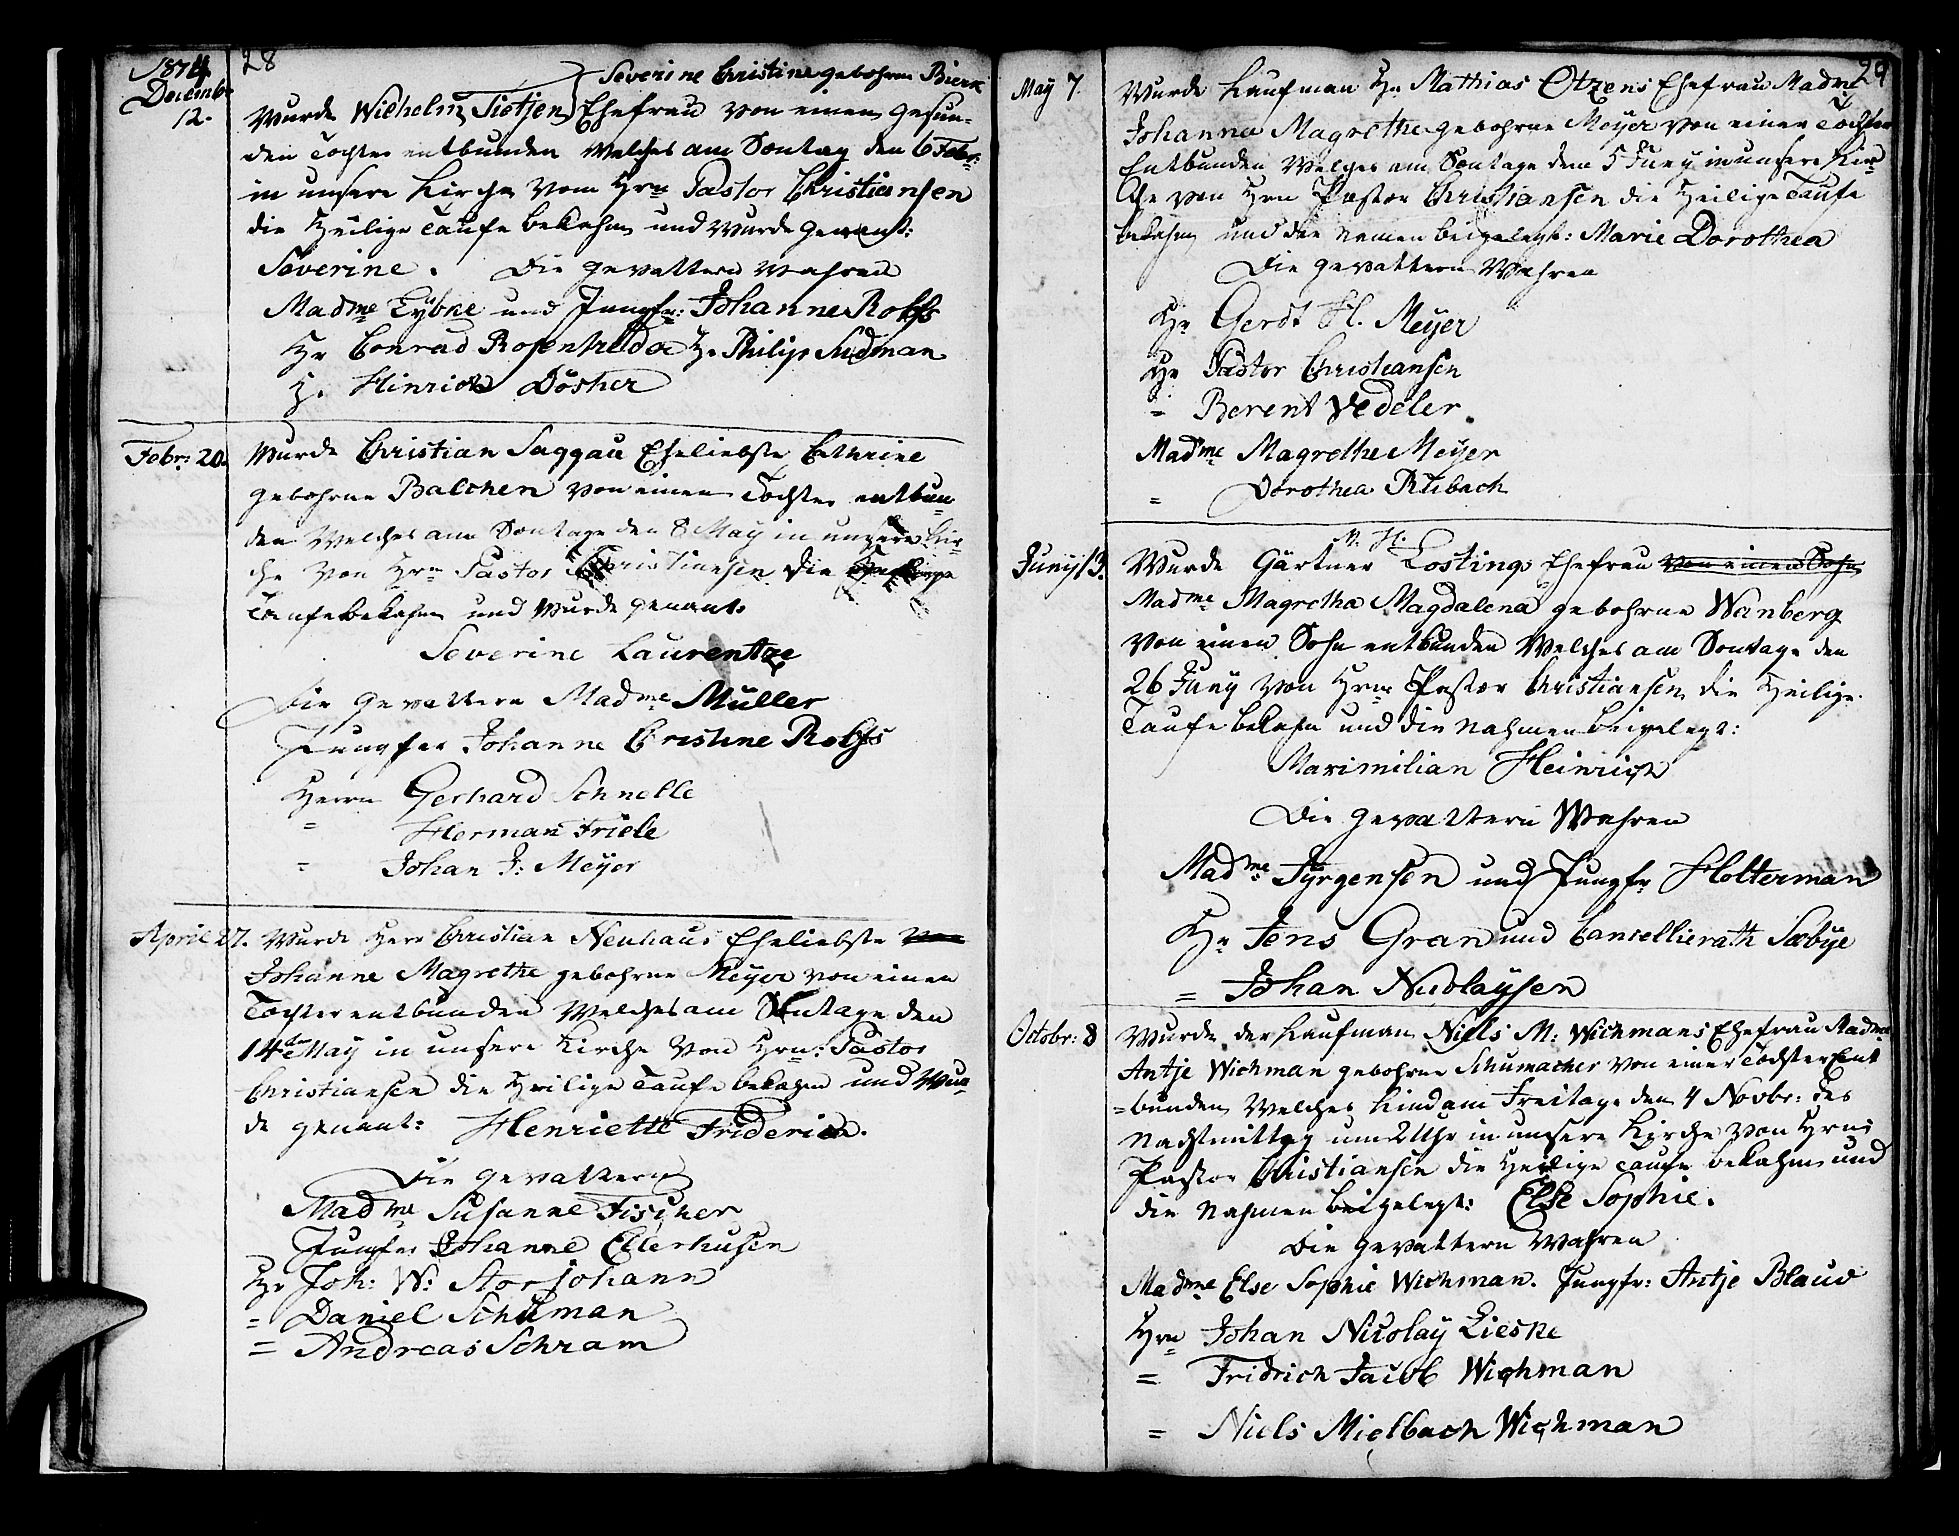 28
1874
Decembr
12.
Severine Christine gebohrne Bierk
Wurde Wilhelm Tietjen Ehefrau von einen gesun-
den Tochter entbunden Welches am Sontag den 6 Febr:
in unsere Kirche vom Hrn Pastor Christiansen
die Heilige Taufe bekahm und Wurde genant:
Severine. Die gevattern wahren
Madme Lÿbke und Jungfr: Johanne Rolfs
Hr Conrad H: Philip Sudman
H. Hinrich Dösher
Febr: 20. Wurde Christian Saggau Eheliebste Cathrine
gebohrne Balchen von einen Tochter entbun-
den Welches am Sontage den 8 May in unsere Kir-
che von Hrn Pastor Christiansen die Heilige
Taufe bekahm und Wurde genant:
Severine Laurentze
Die gevattern Madme Müller
Jungfer Johanne Christine Rolfs
Herrn Gerhard Schnelle
= Herman Friele
= Johan J: Meyer
April 27. Wurde Herr Christian Neuhaus Eheliebste von
Johanne Magrethe gebohrne Meyer von einen
Tochter entbunden Welches am Sontage den
14te May in unsere Kirche von Hrn: Pastor
Christiansen die Heilige Taufe bekahm und Wur-
de genant: Henriette Friderica.
Die gevattern
Madme Susanne Fischer
Jungfr: Johanne Ellerhusen
Hr Joh: W: Storjohann
= Daniel Schuman
= Andreas Schram
29
May 7. Wurde Kaufman Hr Mathias Otzens Ehefrau Madme
Johanna Magrethe gebohrne Meyer von einen Tochter
Entbunden Welches am Sontage dem 5 Juny in unsere Kir-
che von Hrn Pastor Christiansen die Heilige Taufe
bekahm und die Namen beigelegt: Marie Dorothea
Die gevattern Wahren
Hr Gerdt H. Meyer
Hr Pastor Christiansen
= Berent Vedeler.
Madme Magrethe Meyer
= Dorothea Rübach
M. H.
Juny 13. Wurde Gärtner Tostings Ehefrau von einen Sohn
Madme Magretha Magdalena gebohrne Wanberg
von einen Sohn entbunden Welches am Sontage den
26 Juny von Hrn Pastor Christiansen die Heilige
Taufe bekahm und die Nahmen beigelegt:
Maximilian Heinrich
Die gevattern Wahren
Madme Jÿrgensen und Jungfr Holterman
Hr Jens Gran und Cancellierath Sæbye
= Johan Nicolaysen
Octobr: 8 Wurde der Kaufman Niels M: Wichmans Ehefrau Madme
Antje Wichman gebohrne Schumacher von einer Tochter Ent
=bunden Welches Kind am Freitage den 4 Novbr: des
Nachmittag um 2 Uhr in unsere Kirche von Hrn:
Pastor Christiansen die Heilige Taufe bekahm und
die Nahmen beigelegt: Else Sophie.
Die gevattern Wahren
Madme Else Sophie Wichman. Jungfr: Antje Blauv
Hrn Johan Nicolay Lieske
= Fridrich Jacob Wichman
= Niels Mielbach Wichman